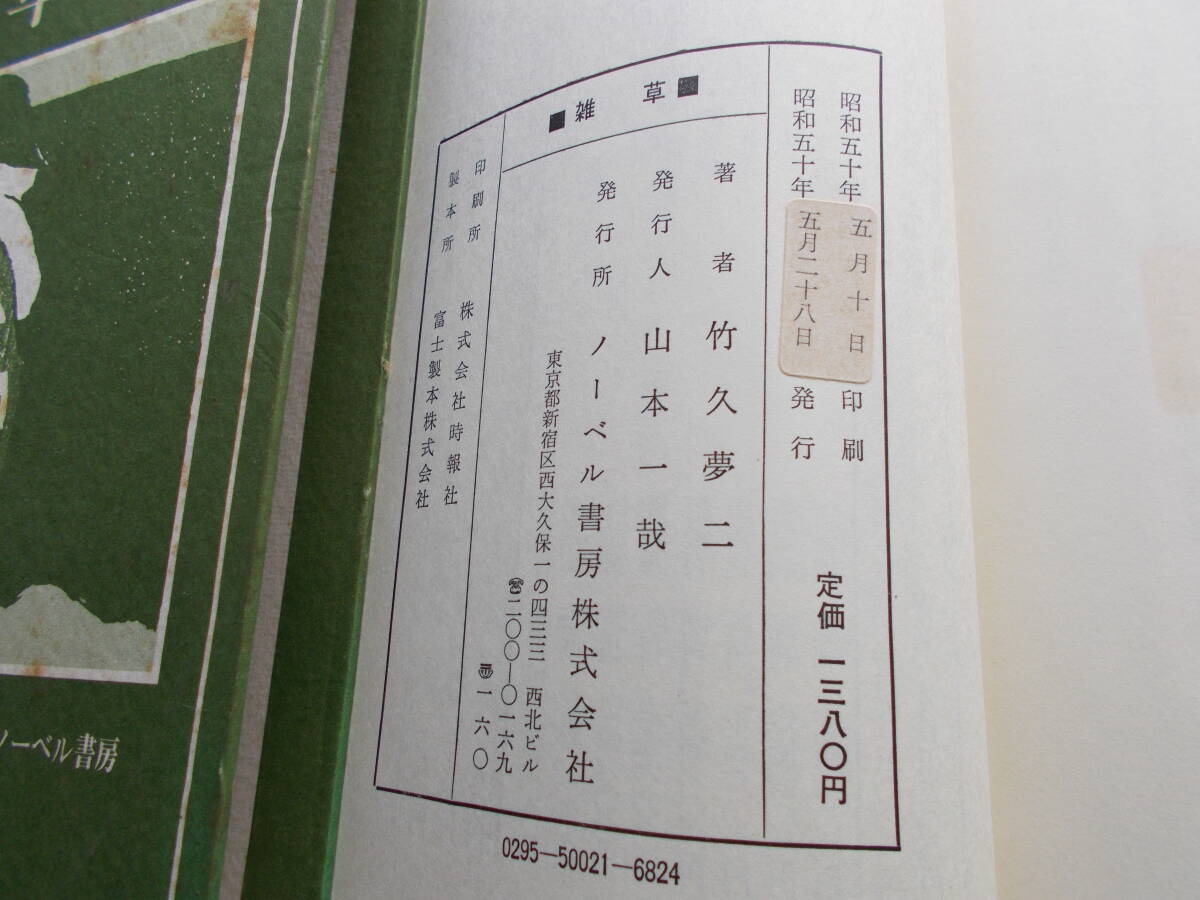 昭和五十年 五月十日 印刷
昭和五十年 五月二十八日 発行
定価 一三八〇円
■草雑■
著者 竹久夢二
発行人 山本一哉
発行所 ノーベル書房株式会社
東京都新宿区西大久保一の四三三 西北ビル
☎二〇〇―〇一六九
〒一六〇
印刷所 株式会社時報社
製本所 富士製本株式会社
0295―50021―6824
ノーベル書房